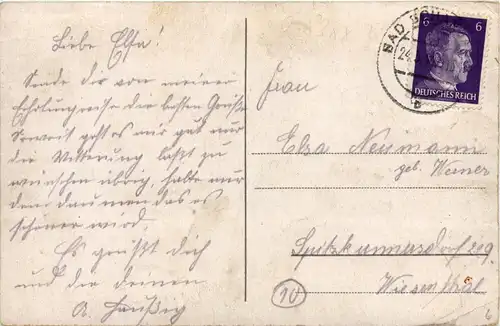 Liebe Elsa!
Sende dir von meiner
Erholungsreise die besten Grüsse
Soweit geht es mir gut nur
die Witterung lässt zu
wünschen übrig, halte nur
den daumen das es
schöner wird.
Es grüßt dich
und die deinen
A.
BAD
24.
b
6 6
DEUTSCHES REICH
Frau
Elsa Neumann
geb. Werner
Spitzkunnersdorf 219
10
6